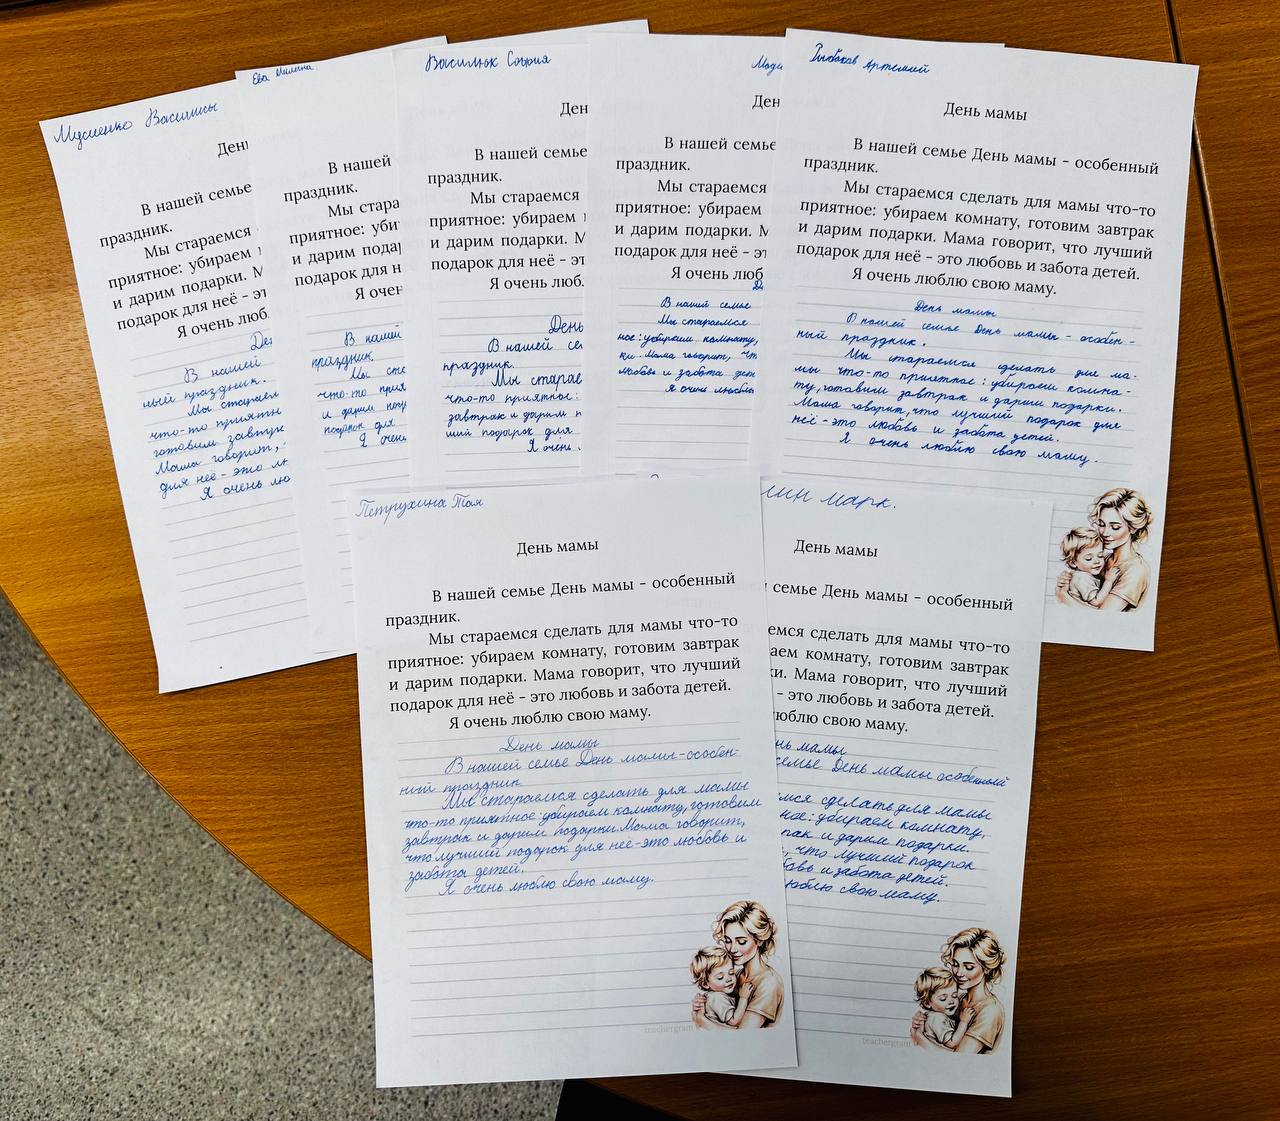 Мусиенко Василисы
День
В нашей семье
праздник.
Мы стараемся
приятное: убираем
и дарим подарки. М
подарок для неё - эт
Я очень любл
Ден
В нашей
ный праздник.
Мы стараем
что-то приятн
готовим завтрак
Мама говорит,
для неё - это лю
Я очень лю
Ева Милена.
В нашей
праздник.
Мы стара
приятное: убир
и дарим пода
подарок для н
Я очен
В нашей
праздник
Мы ста
что-то прия
и дарим пода
подарок для
Я очень
Василюк София
Ден
В нашей семье
праздник.
Мы стараемся
приятное: убираем
и дарим подарки. М
подарок для неё - эт
Я очень люб
День
В нашей се
праздник.
Мы старае
что-то приятное:
завтрак и дарим п
ший подарок для
Я очень
Ден
В нашей семье
праздник.
Мы стараемся
приятное: убираем
и дарим подарки. М
подарок для неё - эт
Я очень люб
Де
В нашей семье
Мы стараемся
ное: убираем комнату,
ки. Мама говорит, чт
любовь и забота дет
Я очень люблю
Рыбаков Артемий
День мамы
В нашей семье День мамы - особенный
праздник.
Мы стараемся сделать для мамы что-то
приятное: убираем комнату, готовим завтрак
и дарим подарки. Мама говорит, что лучший
подарок для неё - это любовь и забота детей.
Я очень люблю свою маму.
День мамы
В нашей семье День мамы - особен-
ный праздник.
Мы стараемся сделать для ма-
мы что-то приятное: убираем комна-
ту, готовим завтрак и дарим подарки.
Мама говорит, что лучший подарок для
неё - это любовь и забота детей.
Я очень люблю свою маму.
Петрухина Тая
День мамы
В нашей семье День мамы - особенный
праздник.
Мы стараемся сделать для мамы что-то
приятное: убираем комнату, готовим завтрак
и дарим подарки. Мама говорит, что лучший
подарок для неё - это любовь и забота детей.
Я очень люблю свою маму.
День мамы
В нашей семье День мамы-особен-
ный праздник
Мы стараемся сделать для мамы
что-то приятное: убираем комнату, готовим
завтрак и дарим подарки. Мама говорит,
что лучший подарок для нее-это любовь и
забота детей.
Я очень люблю свою маму.
teachergram
лин Марк.
День мамы
семье День мамы - особенный
емся сделать для мамы что-то
аем комнату, готовим завтрак
ки. Мама говорит, что лучший
- это любовь и забота детей.
юблю свою маму.
нь мамы
семье День мамы особенный
мся сделать для мамы
ное: убираем комнату,
рак и дарим подарки.
, что лучший подарок
бовь и забота детей.
юблю свою маму.
teachergram